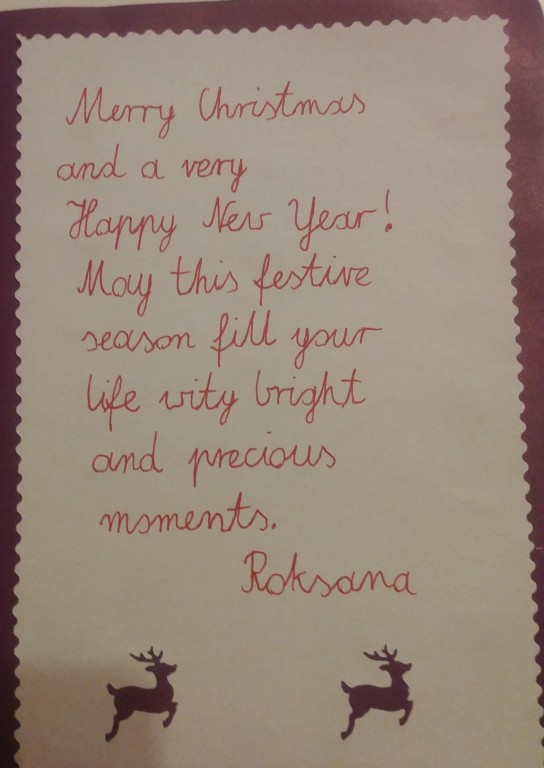 Merry Christmas
and a very
Happy New Year!
May this festive
season fill your
life wity bright
and precious
moments.
Roksana